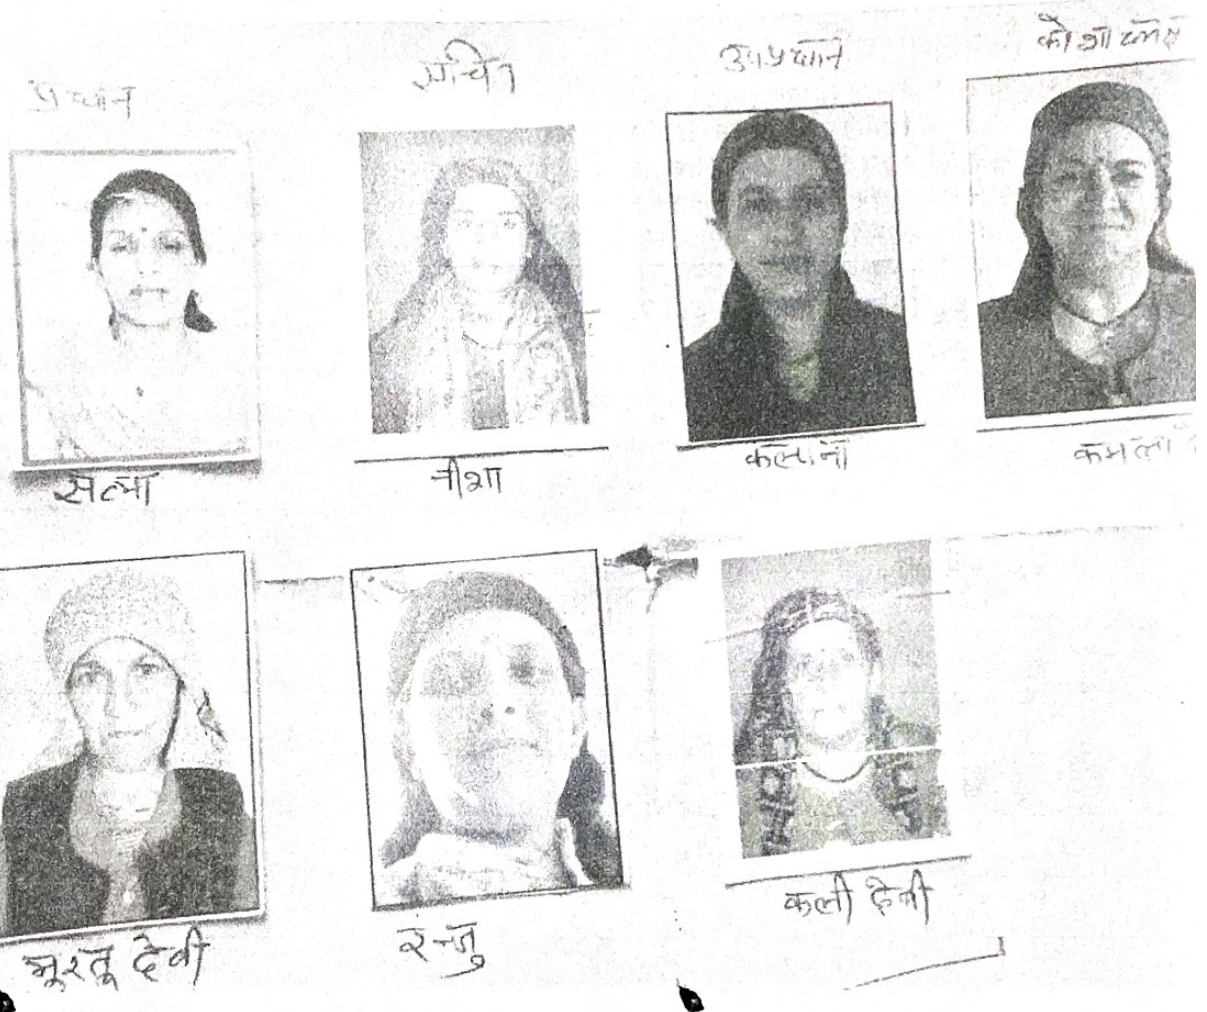 प्रधान
सचिव
उपप्रधान
कोषाध्यक्ष
सत्या
नीशा
कल्पना
कमला
भूरतू देवी
रन्जु
कली देवी